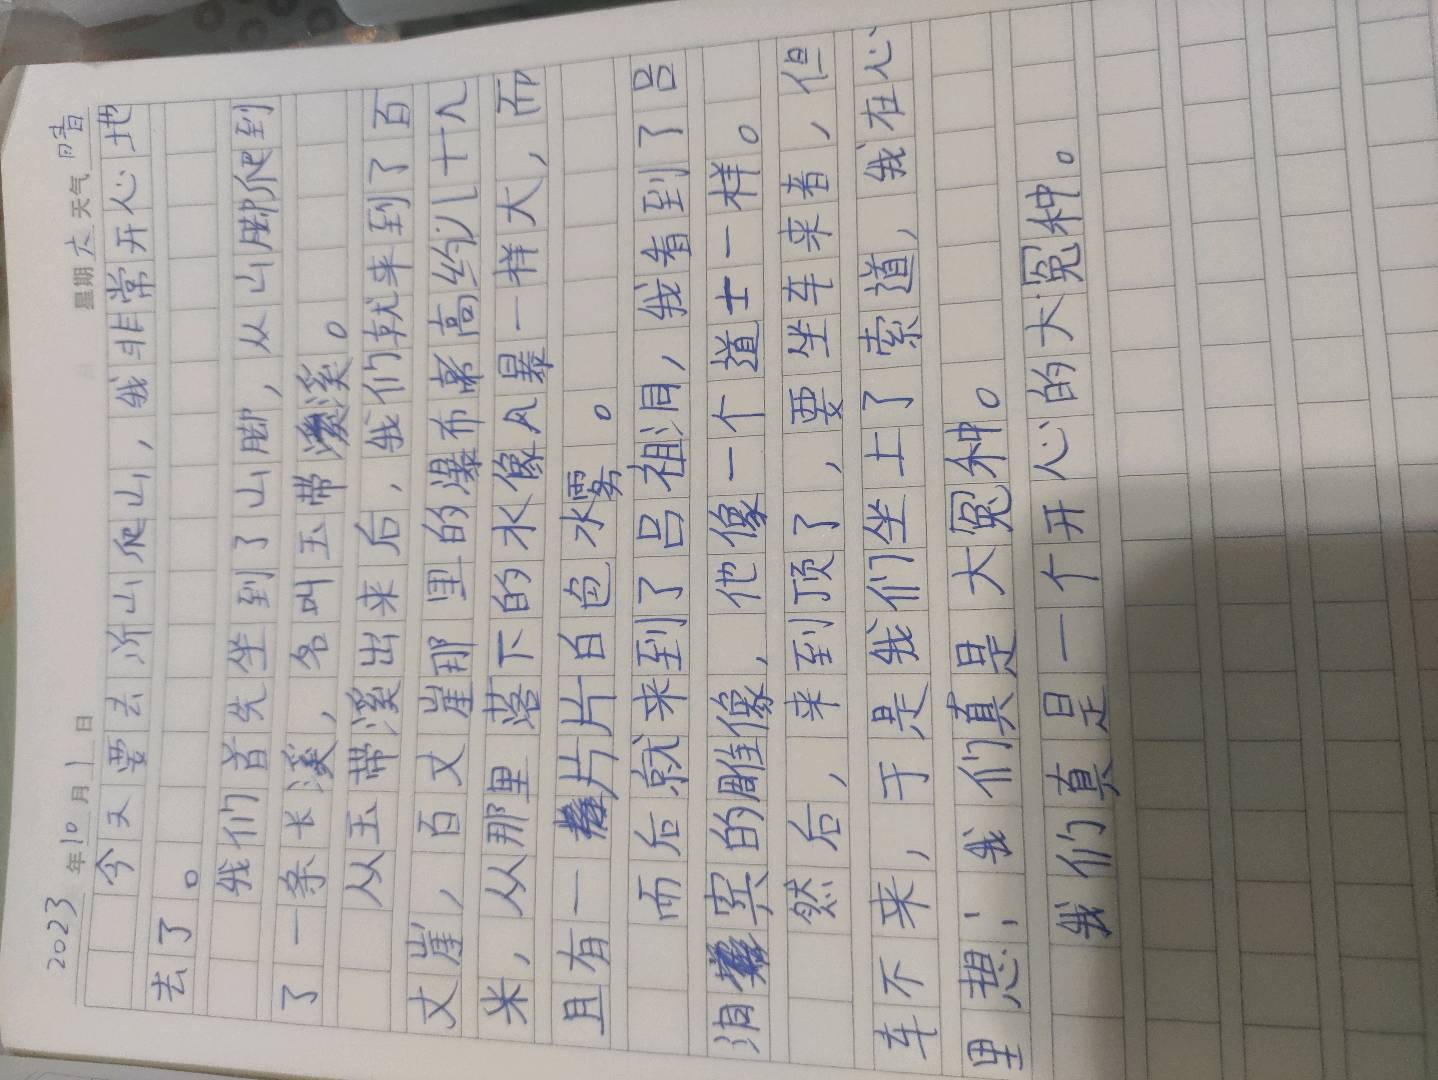 2023年10月1日 星期六 天气晴
今天要去沂山爬山，我非常开心地
去了。
我们首先坐到了山脚，从山脚爬到
了一条长溪，名叫玉带溪。
从玉带溪出来后，我们就来到了百
丈崖，百丈崖那里的瀑布高约八十九
米，从那里落下的水像风暴一样大，而
且有一片片白色水雾。
而后就来到了吕祖洞，我看到了吕
洞宾的雕像，他像一个道士一样。
然后，来到顶了，要坐车来着，但
车不来，于是我们坐上了索道，我在心
里想：我们真是大冤种。
我们真是一个开心的大冤种。